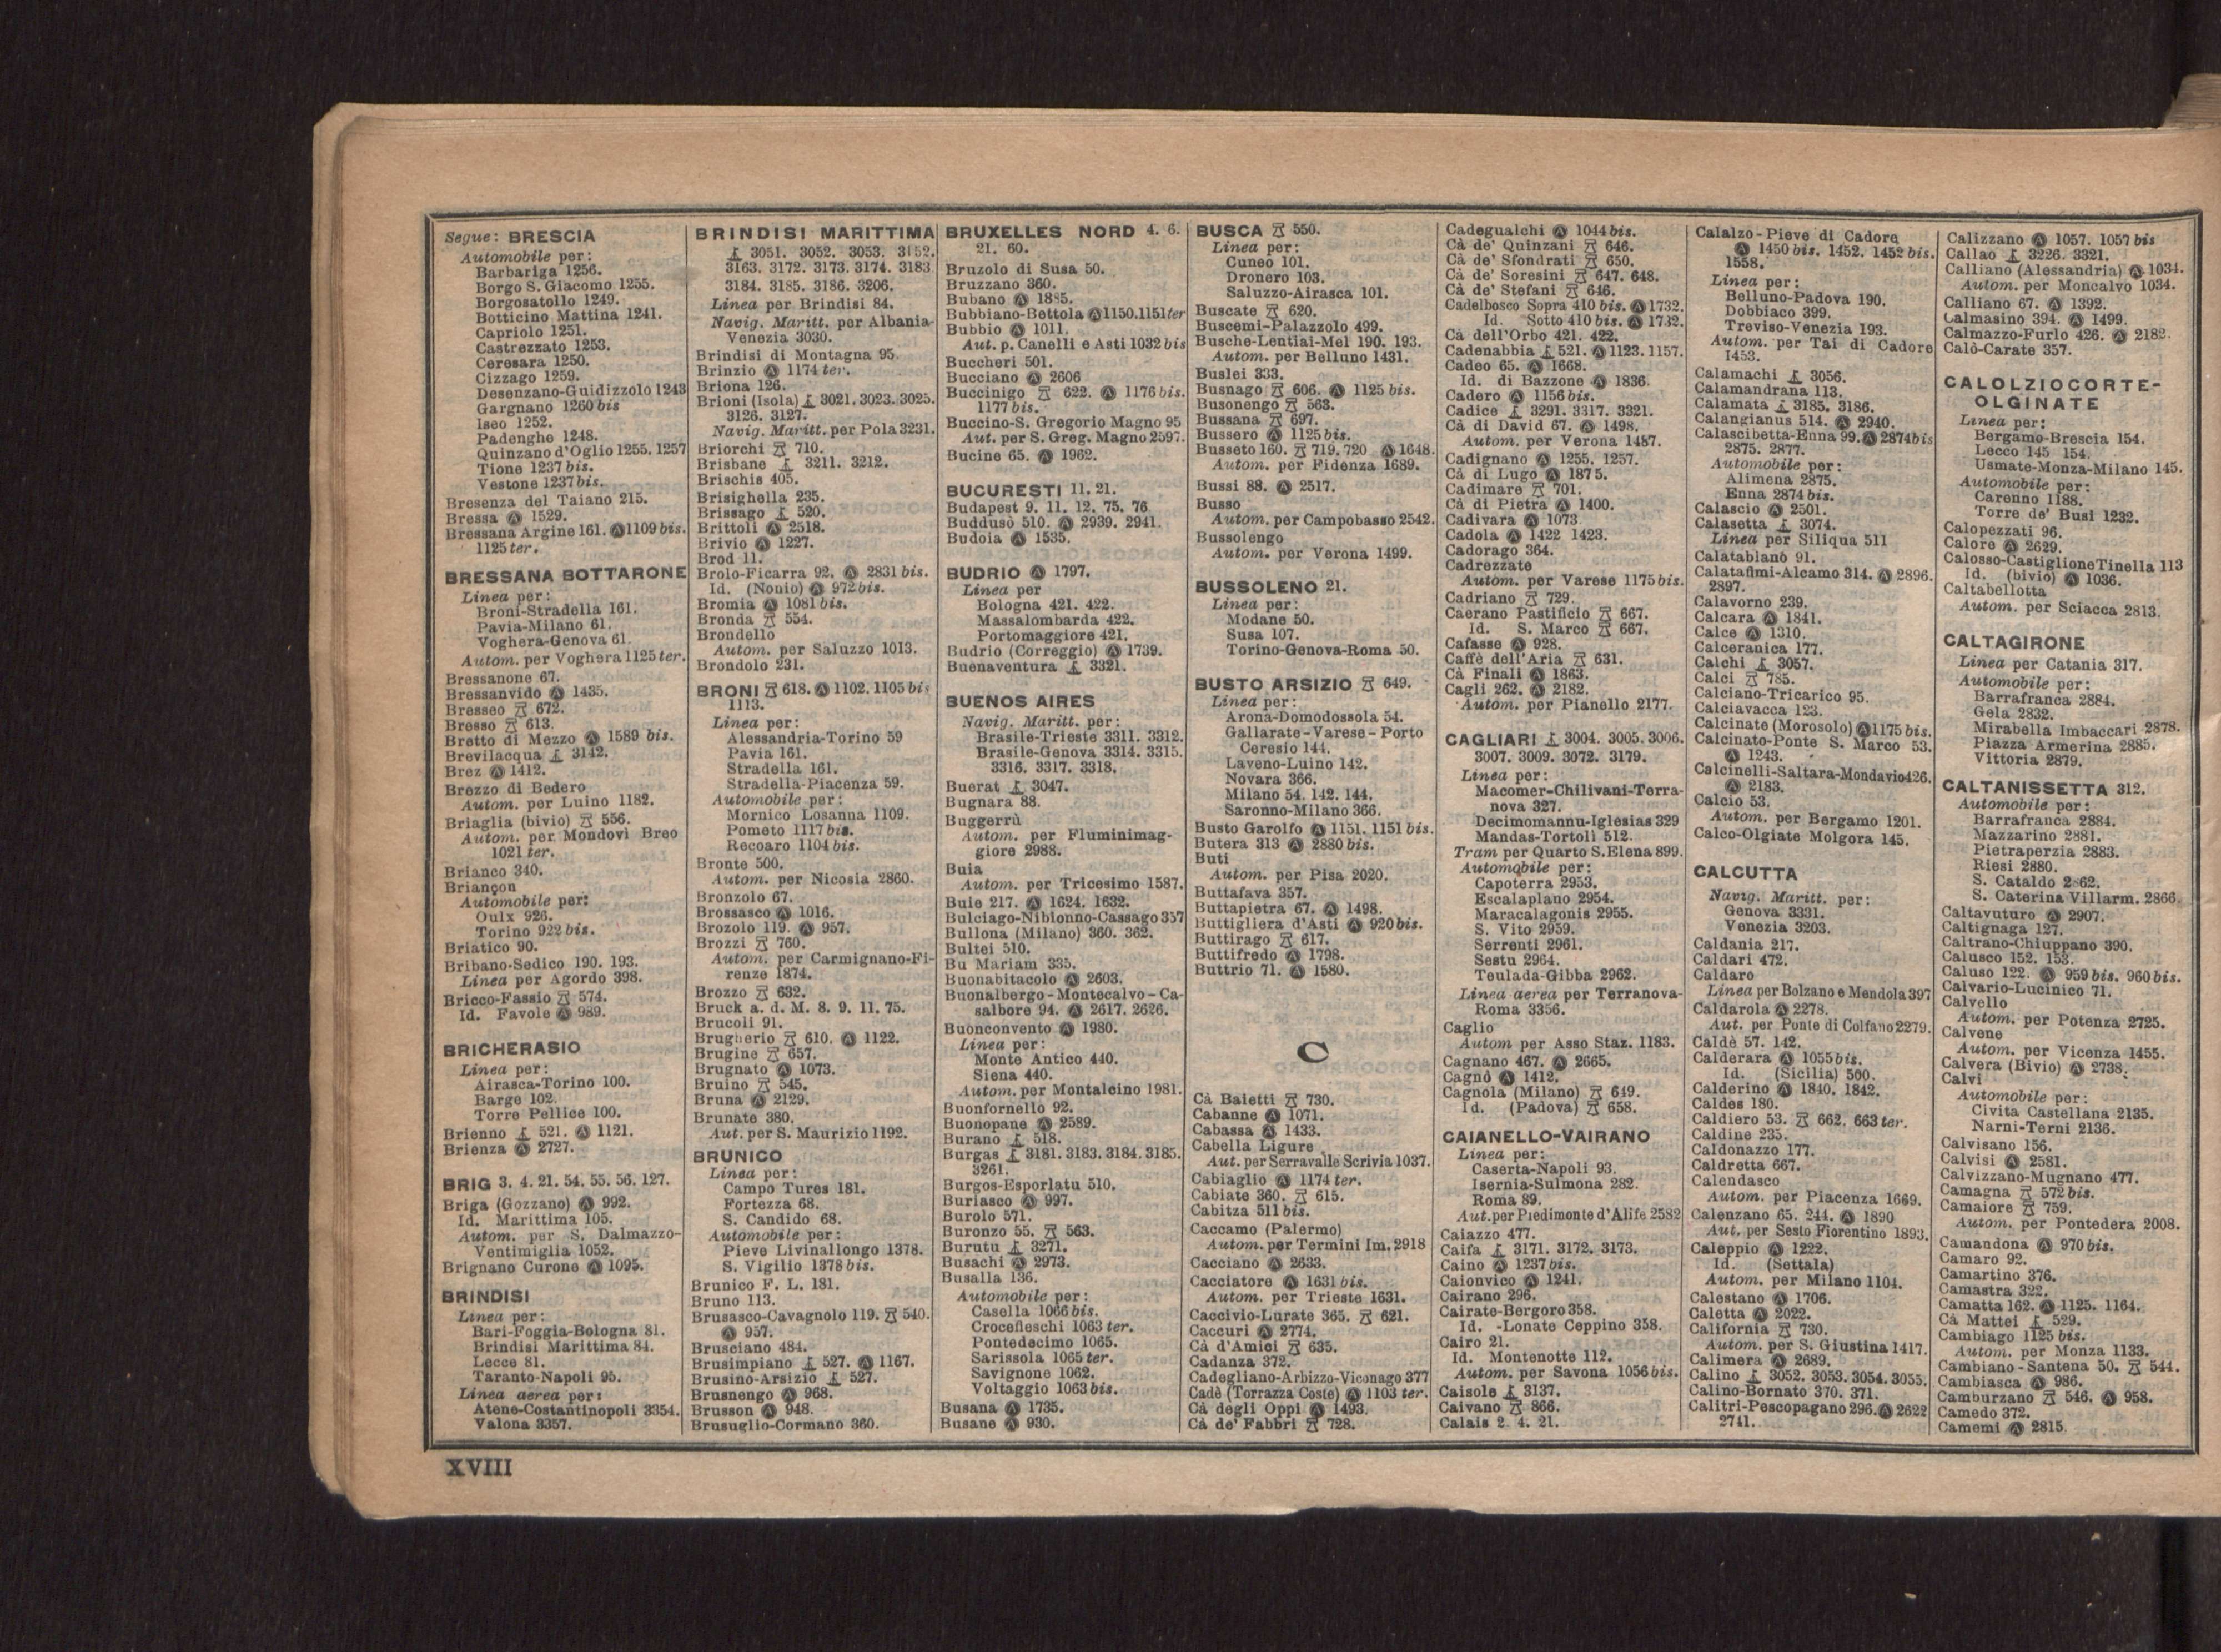 Segue: BRESCIA
Automobile per:
Barbariga 1256.
Borgo S. Giacomo 1255.
Borgosatollo 1249.
Botticino Mattina 1241.
Capriolo 1251.
Castrezzato 1253.
Ceresara 1250.
Cizzago 1259.
Desenzano-Guidizzolo 1243
Gargnano 1260 bis
Iseo 1252.
Padenghe 1248.
Quinzano d'Oglio 1255. 1257
Tione 1237 bis.
Vestone 1237 bis.
Bresenza del Taiano 215.
Bressa Ⓐ 1529.
Bressana Argine 161. Ⓐ 1109 bis.
1125 ter.
BRESSANA BOTTARONE
Linea per:
Broni-Stradella 161.
Pavia-Milano 61.
Voghera-Genova 61.
Autom. per Voghera 1125 ter.
Bressanone 67.
Bressanvido Ⓐ 1435.
Bresseo 672.
Bresso 613.
Bretto di Mezzo Ⓐ 1589 bis.
Brevilacqua 3142.
Brez Ⓐ 1412.
Brezzo di Bedero
Autom. per Luino 1182.
Briaglia (bivio) 556.
Autom. per Mondovì Breo
1021 ter.
Brianco 340.
Briançon
Automobile per:
Oulx 926.
Torino 922 bis.
Briatico 90.
Bribano-Sedico 190. 193.
Linea per Agordo 398.
Bricco-Fassio 574.
Id. Favole Ⓐ 989.
BRICHERASIO
Linea per:
Airasca-Torino 100.
Barge 102.
Torre Pellice 100.
Brienno 521. Ⓐ 1121.
Brienza Ⓐ 2727.
BRIG 3. 4. 21. 54. 55. 56. 127.
Briga (Gozzano) Ⓐ 992.
Id. Marittima 105.
Autom. per S. Dalmazzo-
Ventimiglia 1052.
Brignano Curone Ⓐ 1095.
BRINDISI
Linea per:
Bari-Foggia-Bologna 81.
Brindisi Marittima 84.
Lecce 81.
Taranto-Napoli 95.
Linea aerea per:
Atene-Costantinopoli 3354.
Valona 3357.
BRINDISI MARITTIMA
3051. 3052. 3053. 3152.
3163. 3172. 3173. 3174. 3183
3184. 3185. 3186. 3206.
Linea per Brindisi 84.
Navig. Maritt. per Albania-
Venezia 3030.
Brindisi di Montagna 95.
Brinzio Ⓐ 1174 ter.
Briona 126.
Brioni (Isola) 3021. 3023. 3025.
3126. 3127.
Navig. Maritt. per Pola 3231.
Briorchi 710.
Brisbane 3211. 3212.
Brischis 405.
Brisighella 235.
Brissago 520.
Brittoli Ⓐ 2518.
Brivio Ⓐ 1227.
Brod 11.
Brolo-Ficarra 92. Ⓐ 2831 bis.
Id. (Nonio) Ⓐ 972 bis.
Bromia Ⓐ 1081 bis.
Bronda 554.
Brondello
Autom. per Saluzzo 1013.
Brondolo 231.
BRONI 618. Ⓐ 1102. 1105 bis
1113.
Linea per:
Alessandria-Torino 59
Pavia 161.
Stradella 161.
Stradella-Piacenza 59.
Automobile per:
Mornico Losanna 1109.
Pometo 1117 bis.
Recoaro 1104 bis.
Bronte 500.
Autom. per Nicosia 2860.
Bronzolo 67.
Brossasco Ⓐ 1016.
Brozolo 119. Ⓐ 957.
Brozzi 760.
Autom. per Carmignano-Fi-
renze 1874.
Brozzo 632.
Bruck a. d. M. 8. 9. 11. 75.
Brucoli 91.
Brugherio 610. Ⓐ 1122.
Brugine 657.
Brugnato Ⓐ 1073.
Bruino 545.
Bruna Ⓐ 2129.
Brunate 380.
Aut. per S. Maurizio 1192.
BRUNICO
Linea per:
Campo Tures 181.
Fortezza 68.
S. Candido 68.
Automobile per:
Pieve Livinallongo 1378.
S. Vigilio 1378 bis.
Brunico F. L. 181.
Bruno 113.
Brusasco-Cavagnolo 119. 540.
Ⓐ 957.
Brusciano 484.
Brusimpiano 527. Ⓐ 1167.
Brusino-Arsizio 527.
Brusnengo Ⓐ 968.
Brusson Ⓐ 948.
Brusuglio-Cormano 360.
BRUXELLES NORD 4. 6.
21. 60.
Bruzolo di Susa 50.
Bruzzano 360.
Bubano Ⓐ 1885.
Bubbiano-Bettola Ⓐ 1150. 1151 ter
Bubbio Ⓐ 1011.
Aut. p. Canelli e Asti 1032 bis
Buccheri 501.
Bucciano Ⓐ 2606
Buccinigo 622. Ⓐ 1176 bis.
1177 bis.
Buccino-S. Gregorio Magno 95
Aut. per S. Greg. Magno 2597.
Bucine 65. Ⓐ 1962.
BUCURESTI 11. 21.
Budapest 9. 11. 12. 75. 76
Buddusò 510. Ⓐ 2939. 2941.
Budoia Ⓐ 1535.
BUDRIO Ⓐ 1797.
Linea per
Bologna 421. 422.
Massalombarda 422.
Portomaggiore 421.
Budrio (Correggio) Ⓐ 1739.
Buenaventura 3321.
BUENOS AIRES
Navig. Maritt. per:
Brasile-Trieste 3311. 3312.
Brasile-Genova 3314. 3315.
3316. 3317. 3318.
Buerat 3047.
Bugnara 88.
Buggerrù
Autom. per Fluminimag-
giore 2988.
Buia
Autom. per Tricesimo 1587.
Buie 217. Ⓐ 1624. 1632.
Bulciago-Nibionno-Cassago 357
Bullona (Milano) 360. 362.
Bultei 510.
Bu Mariam 335.
Buonabitacolo Ⓐ 2603.
Buonalbergo-Montecalvo-Ca-
salbore 94. Ⓐ 2617. 2626.
Buonconvento Ⓐ 1980.
Linea per:
Monte Antico 440.
Siena 440.
Autom. per Montalcino 1981.
Buonfornello 92.
Buonopane Ⓐ 2589.
Burano 518.
Burgas 3181. 3183. 3184. 3185.
3261.
Burgos-Esporlatu 510.
Buriasco Ⓐ 997.
Burolo 571.
Buronzo 55. 563.
Burutu 3271.
Busachi Ⓐ 2973.
Busalla 136.
Automobile per:
Casella 1066 bis.
Crocefieschi 1063 ter.
Pontedecimo 1065.
Sarissola 1065 ter.
Savignone 1062.
Voltaggio 1063 bis.
Busana Ⓐ 1735.
Busane Ⓐ 930.
BUSCA 550.
Linea per:
Cuneo 101.
Dronero 103.
Saluzzo-Airasca 101.
Buscate 620.
Buscemi-Palazzolo 499.
Busche-Lentiai-Mel 190. 193.
Autom. per Belluno 1431.
Buslei 333.
Busnago 606. Ⓐ 1125 bis.
Busonengo 563.
Bussana 697.
Bussero Ⓐ 1125 bis.
Busseto 160. 719. 720 Ⓐ 1648.
Autom. per Fidenza 1689.
Bussi 88. Ⓐ 2517.
Busso
Autom. per Campobasso 2542.
Bussolengo
Autom. per Verona 1499.
BUSSOLENO 21.
Linea per:
Modane 50.
Susa 107.
Torino-Genova-Roma 50.
BUSTO ARSIZIO 649.
Linea per:
Arona-Domodossola 54.
Gallarate-Varese-Porto
Ceresio 144.
Laveno-Luino 142.
Novara 366.
Milano 54. 142. 144.
Saronno-Milano 366.
Busto Garolfo Ⓐ 1151. 1151 bis.
Butera 313 Ⓐ 2880 bis.
Buti
Autom. per Pisa 2020.
Buttafava 357.
Buttapietra 67. Ⓐ 1498.
Buttigliera d'Asti Ⓐ 920 bis.
Buttirago 617.
Buttifredo Ⓐ 1798.
Buttrio 71. Ⓐ 1580.
C
Cà Baietti 730.
Cabanne Ⓐ 1071.
Cabassa Ⓐ 1433.
Cabella Ligure
Aut. per Serravalle Scrivia 1037.
Cabiaglio Ⓐ 1174 ter.
Cabiate 360. 615.
Cabitza 511 bis.
Caccamo (Palermo)
Autom. per Termini Im. 2918
Cacciano Ⓐ 2633.
Cacciatore Ⓐ 1631 bis.
Autom. per Trieste 1631.
Caccivio-Lurate 365. 621.
Caccuri Ⓐ 2774.
Cà d'Amici 635.
Cadanza 372.
Cadegliano-Arbizzo-Viconago 377
Cadè (Torrazza Coste) Ⓐ 1103 ter.
Cà degli Oppi Ⓐ 1493.
Cà de' Fabbri 728.
Cadegualchi Ⓐ 1044 bis.
Cà de' Quinzani 646.
Cà de' Sfondrati 650.
Cà de' Soresini 647. 648.
Cà de' Stefani 646.
Cadelbosco Sopra 410 bis. Ⓐ 1732.
Id. Sotto 410 bis. Ⓐ 1732.
Cà dell'Orbo 421. 422.
Cadenabbia 521. Ⓐ 1123. 1157.
Cadeo 65. Ⓐ 1668.
Id. di Bazzone Ⓐ 1836.
Cadero Ⓐ 1156 bis.
Cadice 3291. 3317. 3321.
Cà di David 67. Ⓐ 1498.
Autom. per Verona 1487.
Cadignano Ⓐ 1255. 1257.
Cà di Lugo Ⓐ 1875.
Cadimare 701.
Cà di Pietra Ⓐ 1400.
Cadivara Ⓐ 1073
Cadola Ⓐ 1422 1423.
Cadorago 364.
Cadrezzate
Autom. per Varese 1175 bis.
Cadriano 729.
Caerano Pastificio 667.
Id. S. Marco 667.
Cafasse Ⓐ 928.
Caffè dell'Aria 631.
Cà Finali Ⓐ 1863.
Cagli 262. Ⓐ 2182.
Autom. per Pianello 2177.
CAGLIARI 3004. 3005. 3006.
3007. 3009. 3072. 3179.
Linea per:
Macomer-Chilivani-Terra-
nova 327.
Decimomannu-Iglesias 329
Mandas-Tortolì 512.
Tram per Quarto S. Elena 899.
Automobile per:
Capoterra 2953.
Escalaplano 2954.
Maracalagonis 2955.
S. Vito 2959.
Serrenti 2961.
Sestu 2964.
Teulada-Gibba 2962.
Linea aerea per Terranova-
Roma 3356.
Caglio
Autom per Asso Staz. 1183.
Cagnano 467. Ⓐ 2665.
Cagnò Ⓐ 1412.
Cagnola (Milano) 649.
Id. (Padova) 658.
CAIANELLO-VAIRANO
Linea per:
Caserta-Napoli 93.
Isernia-Sulmona 282.
Roma 89.
Aut. per Piedimonte d'Alife 2582
Caiazzo 477.
Caifa 3171. 3172. 3173.
Caino Ⓐ 1237 bis.
Caionvico Ⓐ 1241.
Cairano 296.
Cairate-Bergoro 358.
Id. -Lonate Ceppino 358.
Cairo 21.
Id. Montenotte 112.
Autom. per Savona 1056 bis.
Caisole 3137.
Caivano 866.
Calais 2. 4. 21.
Calalzo-Pieve di Cadore
Ⓐ 1450 bis. 1452. 1452 bis.
1558.
Linea per:
Belluno-Padova 190.
Dobbiaco 399.
Treviso-Venezia 193.
Autom. per Tai di Cadore
1453.
Calamachi 3056.
Calamandrana 113.
Calamata 3185. 3186.
Calangianus 514. Ⓐ 2940.
Calascibetta-Enna 99. Ⓐ 2874 bis
2875. 2877.
Automobile per:
Alimena 2875.
Enna 2874 bis.
Calascio Ⓐ 2501.
Calasetta 3074.
Linea per Siliqua 511
Calatabiano 91.
Calatafimi-Alcamo 314. Ⓐ 2896.
2897.
Calavorno 239.
Calcara Ⓐ 1841.
Calce Ⓐ 1310.
Calceranica 177.
Calchi 3057.
Calci 785.
Calciano-Tricarico 95.
Calciavacca 123.
Calcinate (Morosolo) Ⓐ 1175 bis.
Calcinato-Ponte S. Marco 53.
Ⓐ 1243.
Calcinelli-Saltara-Mondavio 426.
Ⓐ 2183.
Calcio 53.
Autom. per Bergamo 1201.
Calco-Olgiate Molgora 145.
CALCUTTA
Navig. Maritt. per:
Genova 3331.
Venezia 3203.
Caldania 217.
Caldari 472.
Caldaro
Linea per Bolzano e Mendola 397
Caldarola Ⓐ 2278.
Aut. per Ponte di Colfano 2279.
Caldè 57. 142.
Calderara Ⓐ 1055 bis.
Id. (Sicilia) 500.
Calderino Ⓐ 1840. 1842.
Caldes 180.
Caldiero 53. 662. 663 ter.
Caldine 235.
Caldonazzo 177.
Caldretta 667.
Calendasco
Autom. per Piacenza 1669.
Calenzano 65. 244. Ⓐ 1890
Aut. per Sesto Fiorentino 1893.
Caleppio Ⓐ 1222.
Id. (Settala)
Autom. per Milano 1104.
Calestano Ⓐ 1706.
Caletta Ⓐ 2022.
California 730.
Autom. per S. Giustina 1417.
Calimera Ⓐ 2689.
Calino 3052. 3053. 3054. 3055.
Calino-Bornato 370. 371.
Calitri-Pescopagano 296. Ⓐ 2622
2741.
Calizzano Ⓐ 1057. 1057 bis
Callao 3226. 3321.
Calliano (Alessandria) Ⓐ 1034.
Autom. per Moncalvo 1034.
Calliano 67. Ⓐ 1392.
Calmasino 394. Ⓐ 1499.
Calmazzo-Furlo 426. Ⓐ 2182.
Calò-Carate 357.
CALOLZIOCORTE-
OLGINATE
Linea per:
Bergamo-Brescia 154.
Lecco 145 154.
Usmate-Monza-Milano 145.
Automobile per:
Carenno 1188.
Torre de' Busi 1232.
Calopezzati 96.
Calore Ⓐ 2629.
Calosso-Castiglione Tinella 113
Id. (bivio) Ⓐ 1036.
Caltabellotta
Autom. per Sciacca 2813.
CALTAGIRONE
Linea per Catania 317.
Automobile per:
Barrafranca 2884.
Gela 2832.
Mirabella Imbaccari 2878.
Piazza Armerina 2885.
Vittoria 2879.
CALTANISSETTA 312.
Automobile per:
Barrafranca 2884.
Mazzarino 2881.
Pietraperzia 2883.
Riesi 2880.
S. Cataldo 2862.
S. Caterina Villarm. 2866
Caltavuturo Ⓐ 2907.
Caltignaga 127.
Caltrano-Chiuppano 390.
Calusco 152. 153.
Caluso 122. Ⓐ 959 bis. 960 bis.
Calvario-Lucinico 71.
Calvello
Autom. per Potenza 2725.
Calvene
Autom. per Vicenza 1455.
Calvera (Bivio) Ⓐ 2738.
Calvi
Automobile per:
Civita Castellana 2135.
Narni-Terni 2136.
Calvisano 156.
Calvisi Ⓐ 2581.
Calvizzano-Mugnano 477.
Camagna 572 bis.
Camaiore 759.
Autom. per Pontedera 2008.
Camandona Ⓐ 970 bis.
Camaro 92.
Camartino 376.
Camastra 322.
Camatta 162. Ⓐ 1125. 1164.
Cà Mattei 529.
Cambiago 1125 bis.
Autom. per Monza 1133.
Cambiano-Santena 50. 544.
Cambiasca Ⓐ 986.
Camburzano 546. Ⓐ 958.
Camedo 372.
Camemi Ⓐ 2815.
XVIII